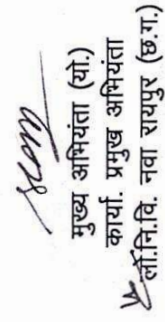 मुख्य अभियंता (यो.)
कार्या. प्रमुख अभियंता
लॉ.नि.वि. नवा रायपुर (छ.ग.)